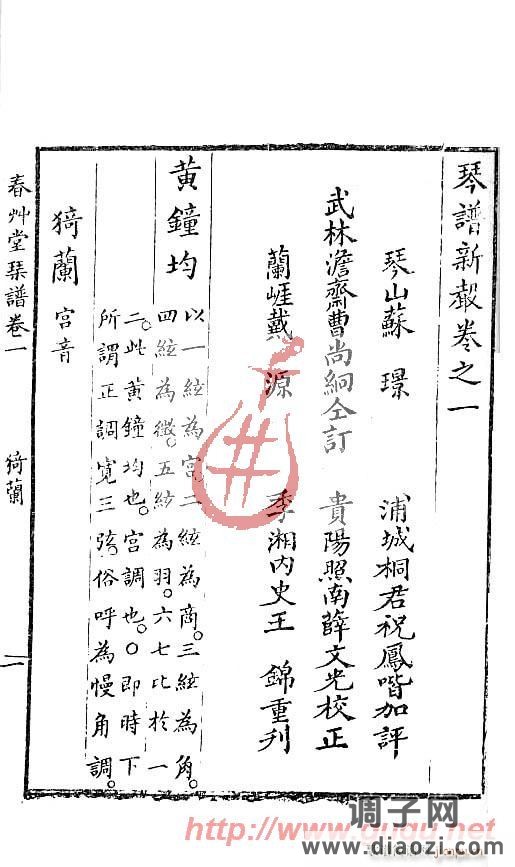 琴譜新聲卷之一
琴山蘇璟
武林澹齋曹尚絅仝訂
蘭崖戴源
浦城桐君祝鳳喈加評
貴陽照南薛文光校正
季湘內史王錦重刋
黃鐘均
以一絃為宮。二絃為商。三絃為角。
四絃為徵。五絃為羽。六七比於一
二。此黃鐘均也。宮調也。○即時下
所謂正調寬三弦。俗呼為慢角調。
猗蘭 宮音
春艸堂琴譜卷一 猗蘭 一
http://www.guqu.net
调子网
www.diaozi.com